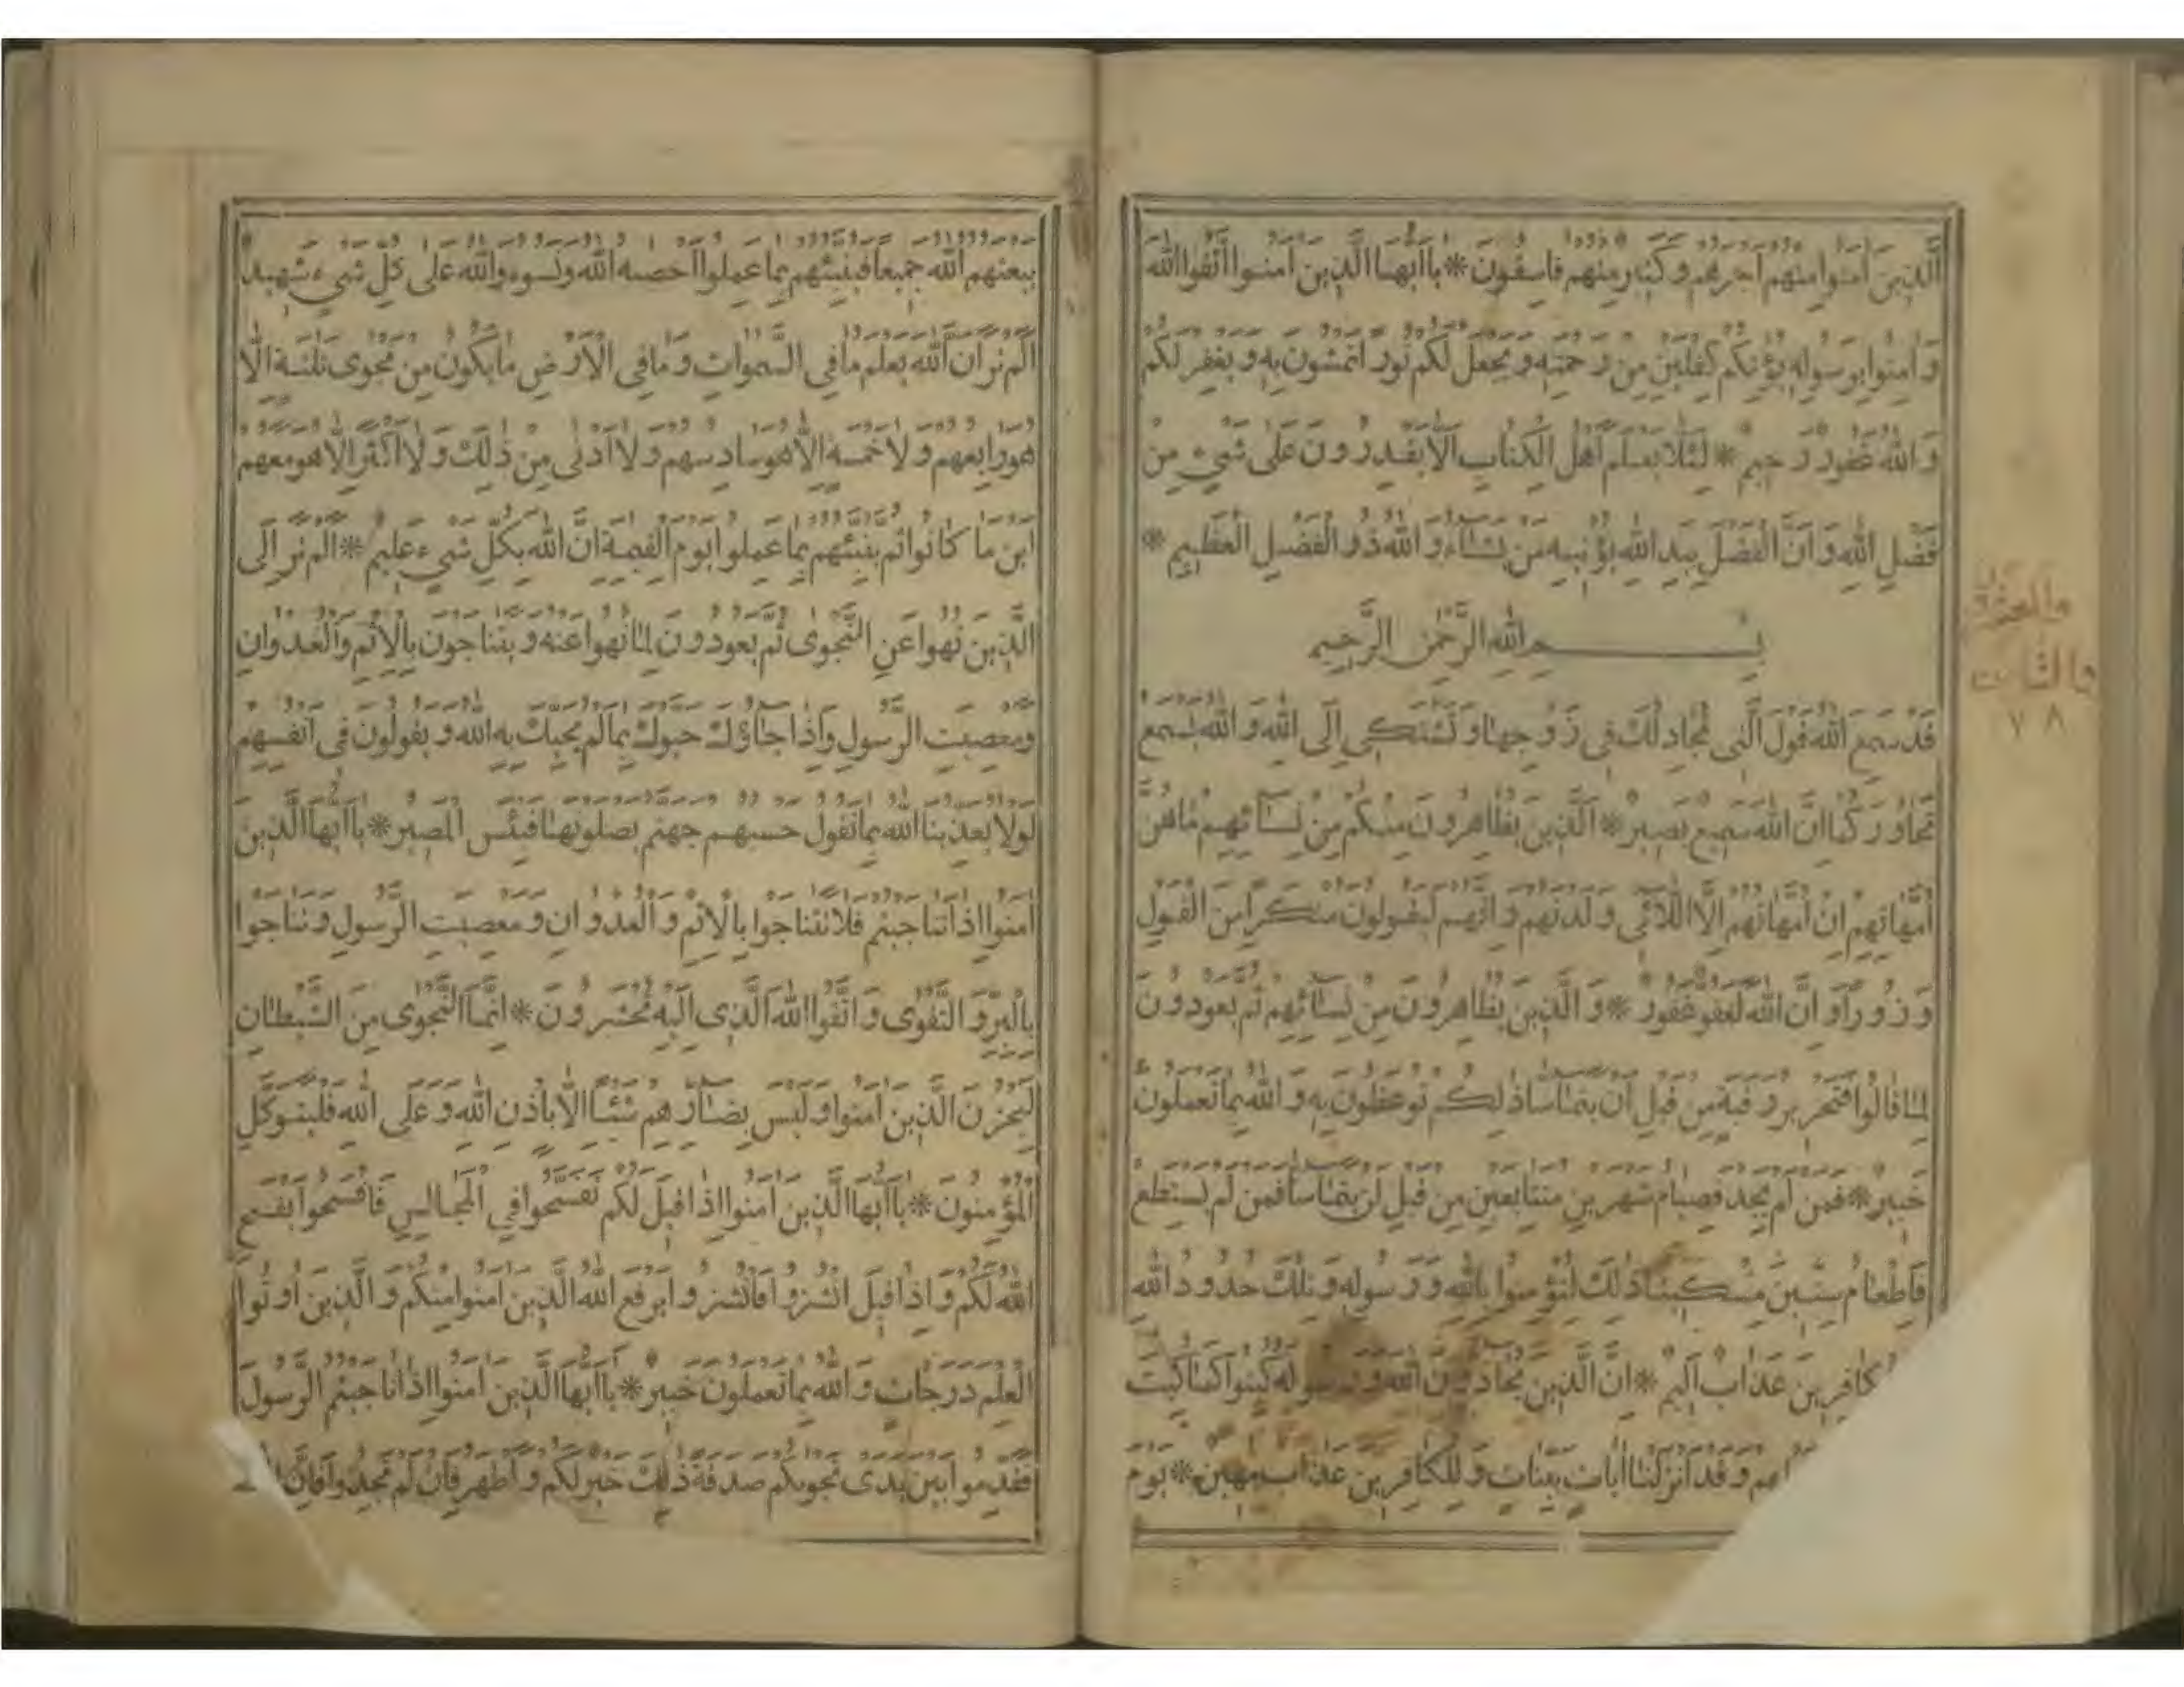 الَّذِينَ آمَنُوا مِنْهُمْ أَجْرَهُمْ وَكَثِيرٌ مِنْهُمْ فَاسِقُونَ * يَا أَيُّهَا الَّذِينَ آمَنُوا اتَّقُوا اللهَ
وَآمِنُوا بِرَسُولِهِ يُؤْتِكُمْ كِفْلَيْنِ مِنْ رَحْمَتِهِ وَيَجْعَلْ لَكُمْ نُورًا تَمْشُونَ بِهِ وَيَغْفِرْ لَكُمْ
وَاللهُ غَفُورٌ رَحِيمٌ * لِئَلَّا يَعْلَمَ أَهْلُ الْكِتَابِ أَلَّا يَقْدِرُونَ عَلَى شَيْءٍ مِنْ
فَضْلِ اللهِ وَأَنَّ الْفَضْلَ بِيَدِ اللهِ يُؤْتِيهِ مَنْ يَشَاءُ وَاللهُ ذُو الْفَضْلِ الْعَظِيمِ *
بِسْمِ اللهِ الرَّحْمٰنِ الرَّحِيمِ
قَدْ سَمِعَ اللهُ قَوْلَ الَّتِي تُجَادِلُكَ فِي زَوْجِهَا وَتَشْتَكِي إِلَى اللهِ وَاللهُ يَسْمَعُ
تَحَاوُرَكُمَا إِنَّ اللهَ سَمِيعٌ بَصِيرٌ * الَّذِينَ يُظَاهِرُونَ مِنْكُمْ مِنْ نِسَائِهِمْ مَا هُنَّ
أُمَّهَاتِهِمْ إِنْ أُمَّهَاتُهُمْ إِلَّا اللَّائِي وَلَدْنَهُمْ وَإِنَّهُمْ لَيَقُولُونَ مُنْكَرًا مِنَ الْقَوْلِ
وَزُورًا وَإِنَّ اللهَ لَعَفُوٌّ غَفُورٌ * وَالَّذِينَ يُظَاهِرُونَ مِنْ نِسَائِهِمْ ثُمَّ يَعُودُونَ
لِمَا قَالُوا فَتَحْرِيرُ رَقَبَةٍ مِنْ قَبْلِ أَنْ يَتَمَاسَّا ذٰلِكُمْ تُوعَظُونَ بِهِ وَاللهُ بِمَا تَعْمَلُونَ
خَبِيرٌ * فَمَنْ لَمْ يَجِدْ فَصِيَامُ شَهْرَيْنِ مُتَتَابِعَيْنِ مِنْ قَبْلِ أَنْ يَتَمَاسَّا فَمَنْ لَمْ يَسْتَطِعْ
فَإِطْعَامُ سِتِّينَ مِسْكِينًا ذٰلِكَ لِتُؤْمِنُوا بِاللهِ وَرَسُولِهِ وَتِلْكَ حُدُودُ اللهِ
كَافِرِينَ عَذَابٌ أَلِيمٌ * إِنَّ الَّذِينَ يُحَادُّونَ اللهَ وَرَسُولَهُ كُبِتُوا كَمَا كُبِتَ
وَقَدْ أَنْزَلْنَا آيَاتٍ بَيِّنَاتٍ وَلِلْكَافِرِينَ عَذَابٌ مُهِينٌ * يَوْمَ
٧٨
يَبْعَثُهُمُ اللهُ جَمِيعًا فَيُنَبِّئُهُمْ بِمَا عَمِلُوا أَحْصٰهُ اللهُ وَنَسُوهُ وَاللهُ عَلَى كُلِّ شَيْءٍ شَهِيدٌ
أَلَمْ تَرَ أَنَّ اللهَ يَعْلَمُ مَا فِي السَّمٰوَاتِ وَمَا فِي الْأَرْضِ مَا يَكُونُ مِنْ نَجْوَى ثَلٰثَةٍ إِلَّا
هُوَ رَابِعُهُمْ وَلَا خَمْسَةٍ إِلَّا هُوَ سَادِسُهُمْ وَلَا أَدْنَى مِنْ ذٰلِكَ وَلَا أَكْثَرَ إِلَّا هُوَ مَعَهُمْ
أَيْنَ مَا كَانُوا ثُمَّ يُنَبِّئُهُمْ بِمَا عَمِلُوا يَوْمَ الْقِيٰمَةِ إِنَّ اللهَ بِكُلِّ شَيْءٍ عَلِيمٌ * أَلَمْ تَرَ إِلَى
الَّذِينَ نُهُوا عَنِ النَّجْوَى ثُمَّ يَعُودُونَ لِمَا نُهُوا عَنْهُ وَيَتَنَاجَوْنَ بِالْإِثْمِ وَالْعُدْوَانِ
وَمَعْصِيَتِ الرَّسُولِ وَإِذَا جَاؤُكَ حَيَّوْكَ بِمَا لَمْ يُحَيِّكَ بِهِ اللهُ وَيَقُولُونَ فِي أَنْفُسِهِمْ
لَوْلَا يُعَذِّبُنَا اللهُ بِمَا نَقُولُ حَسْبُهُمْ جَهَنَّمُ يَصْلَوْنَهَا فَبِئْسَ الْمَصِيرُ * يَا أَيُّهَا الَّذِينَ
آمَنُوا إِذَا تَنَاجَيْتُمْ فَلَا تَتَنَاجَوْا بِالْإِثْمِ وَالْعُدْوَانِ وَمَعْصِيَتِ الرَّسُولِ وَتَنَاجَوْا
بِالْبِرِّ وَالتَّقْوَى وَاتَّقُوا اللهَ الَّذِي إِلَيْهِ تُحْشَرُونَ * إِنَّمَا النَّجْوَى مِنَ الشَّيْطَانِ
لِيَحْزُنَ الَّذِينَ آمَنُوا وَلَيْسَ بِضَارِّهِمْ شَيْئًا إِلَّا بِإِذْنِ اللهِ وَعَلَى اللهِ فَلْيَتَوَكَّلِ
الْمُؤْمِنُونَ * يَا أَيُّهَا الَّذِينَ آمَنُوا إِذَا قِيلَ لَكُمْ تَفَسَّحُوا فِي الْمَجَالِسِ فَافْسَحُوا يَفْسَحِ
اللهُ لَكُمْ وَإِذَا قِيلَ انْشُزُوا فَانْشُزُوا يَرْفَعِ اللهُ الَّذِينَ آمَنُوا مِنْكُمْ وَالَّذِينَ أُوتُوا
الْعِلْمَ دَرَجَاتٍ وَاللهُ بِمَا تَعْمَلُونَ خَبِيرٌ * يَا أَيُّهَا الَّذِينَ آمَنُوا إِذَا نَاجَيْتُمُ الرَّسُولَ
فَقَدِّمُوا بَيْنَ يَدَيْ نَجْوٰيكُمْ صَدَقَةً ذٰلِكَ خَيْرٌ لَكُمْ وَأَطْهَرُ فَإِنْ لَمْ تَجِدُوا فَإِنَّ